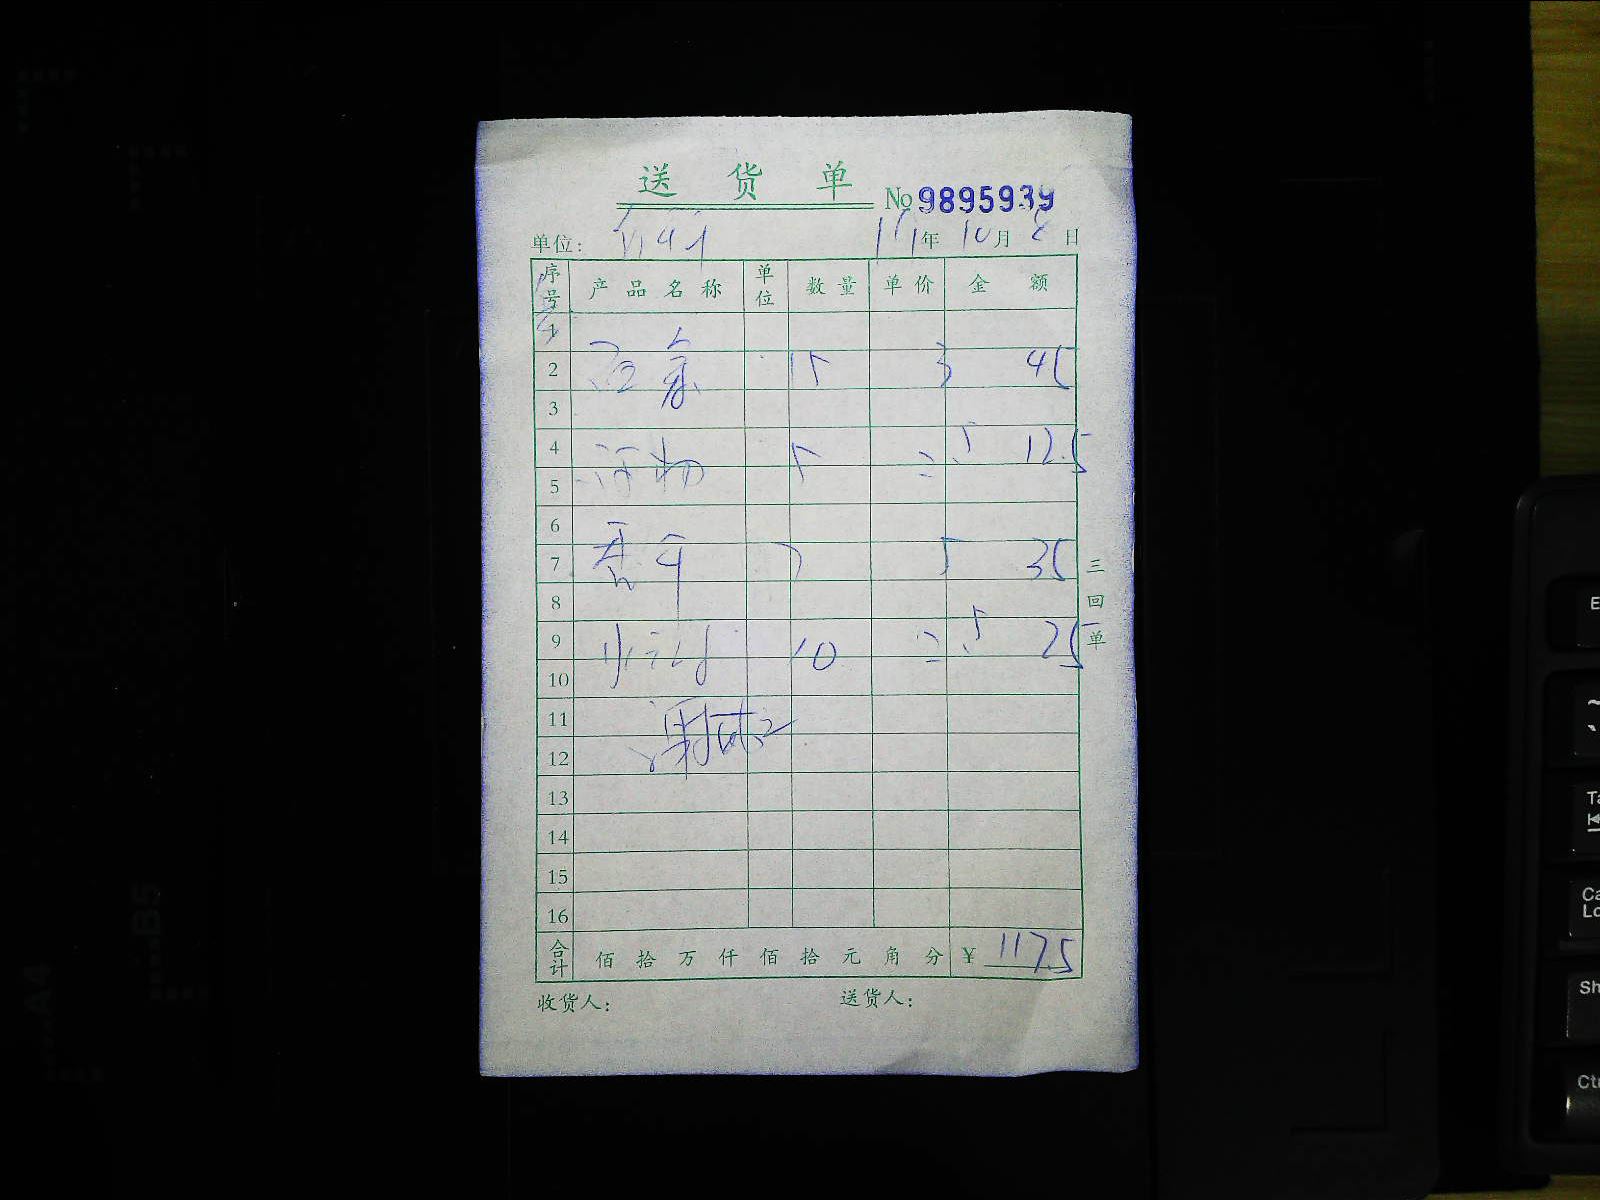 送 货 单 No 9895939
单位: 年 10 月 8 日
序号 产品名称 单位 数量 单价 金额
1
2 15 3 45
3
4 5 2.5 12.5
5
6
7 香干 7 5 35
8
9 10 2.5 25
10
11
12
13
14
15
16
合计 佰 拾 万 仟 佰 拾 元 角 分 ¥ 117.5
收货人: 送货人:
三回单
E
Ta
Ca
Lo
Sh
Ctr
B5
A4